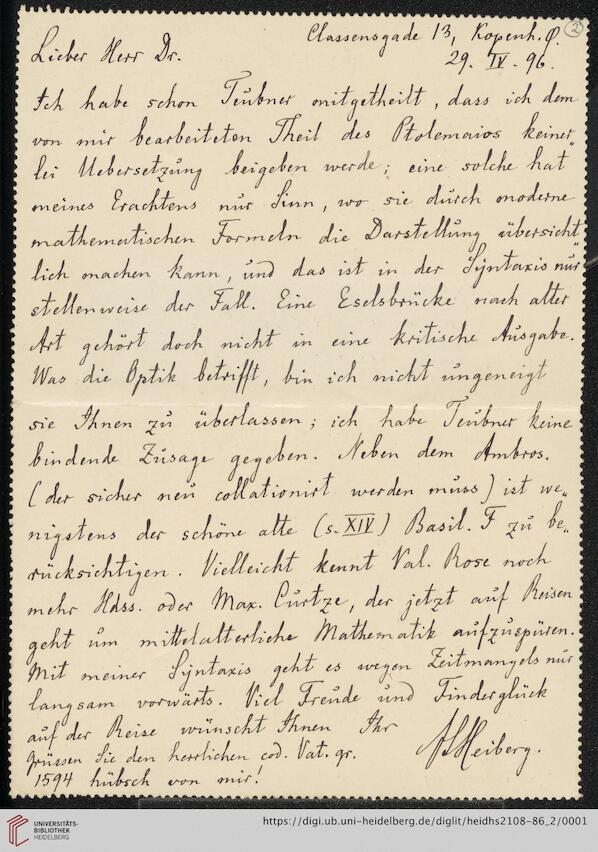 Classensgade 13, Kopenh. Ø.
2
Lieber Herr Dr.
29. IV. 96.
Ich habe schon Teubner mitgetheilt, dass ich dem
von mir bearbeiteten Theil des Ptolemaios keiner„
lei Uebersetzung beigeben werde; eine solche hat
meines Erachtens nur Sinn, wo sie durch moderne
mathematischen Formeln die Darstellung übersicht„
lich machen kann, und das ist in der Syntaxis nur
stellenweise der Fall. Eine Eselsbrücke nach alter
Art gehört doch nicht in eine kritische Ausgabe.
Was die Optik betrifft, bin ich nicht ungeneigt
sie Ihnen zu überlassen; ich habe Teubner keine
bindende Zusage gegeben. Neben dem Ambros.
(der sicher neu collationirt werden muss) ist we„
nigstens der schöne alte (s. XIV) Basil. F zu be„
rücksichtigen. Vielleicht kennt Val. Rose noch
mehr Hdss. oder Max. Curtze, der jetzt auf Reisen
geht um mittelalterliche Mathematik aufzuspüren.
Mit meiner Syntaxis geht es wegen Zeitmangels nur
langsam vorwärts. Viel Freude und Finderglück
auf der Reise wünscht Ihnen Ihr
JLHeiberg.
Grüssen Sie den herrlichen cod. Vat. gr.
1594 hübsch von mir!
UNIVERSITÄTS-
BIBLIOTHEK
HEIDELBERG
https://digi.ub.uni-heidelberg.de/diglit/heidhs2108-86_2/0001